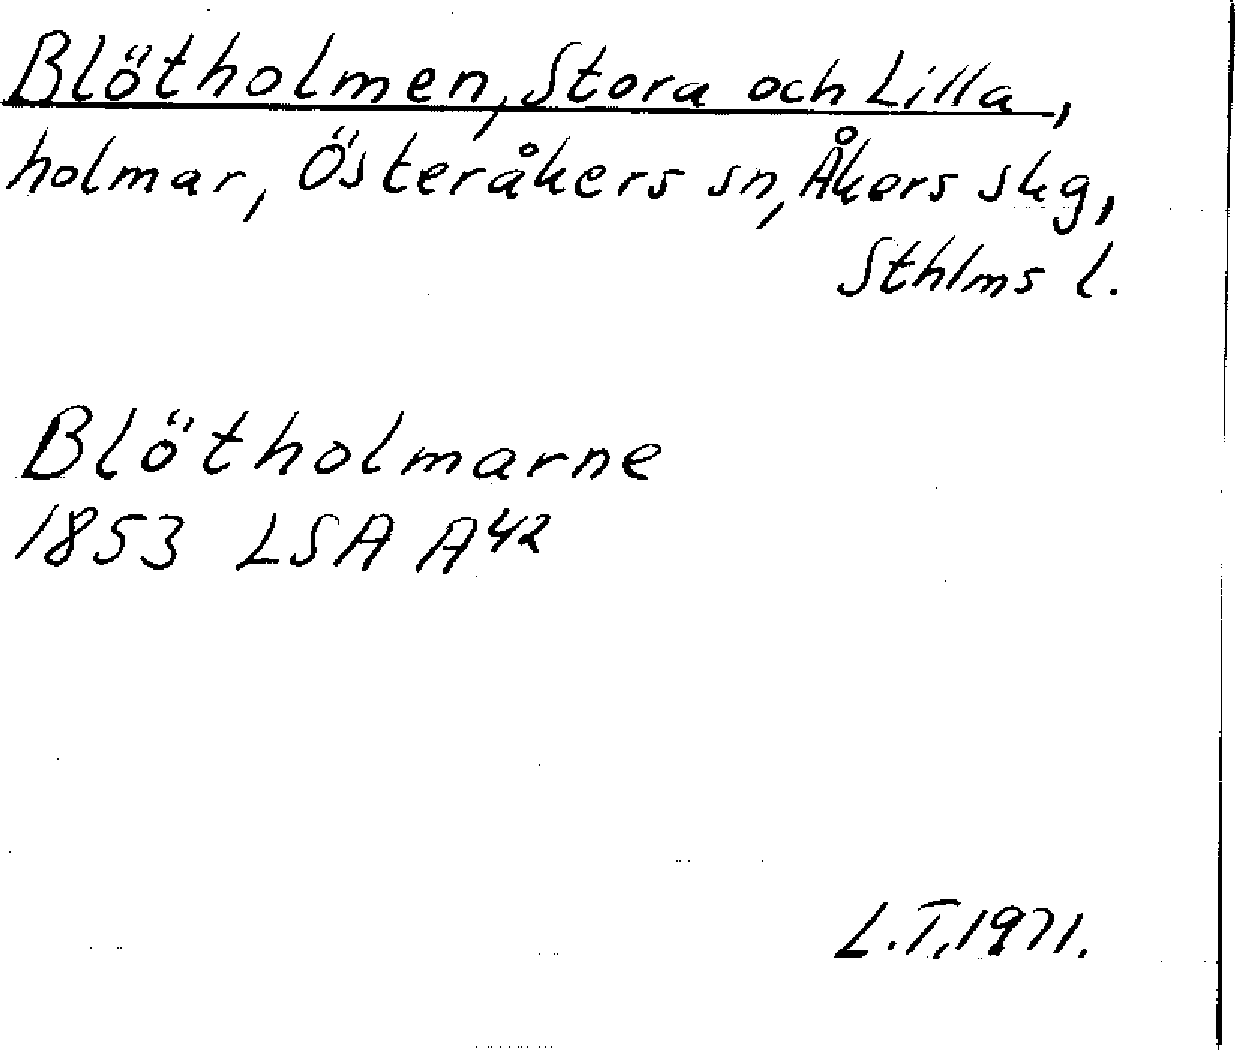 Blötholmen, Stora och Lilla,
holmar, Österåkers sn, Åkers skg,
Sthlms l.
Blötholmarne
1853 LSA A42
L.T. 1971.